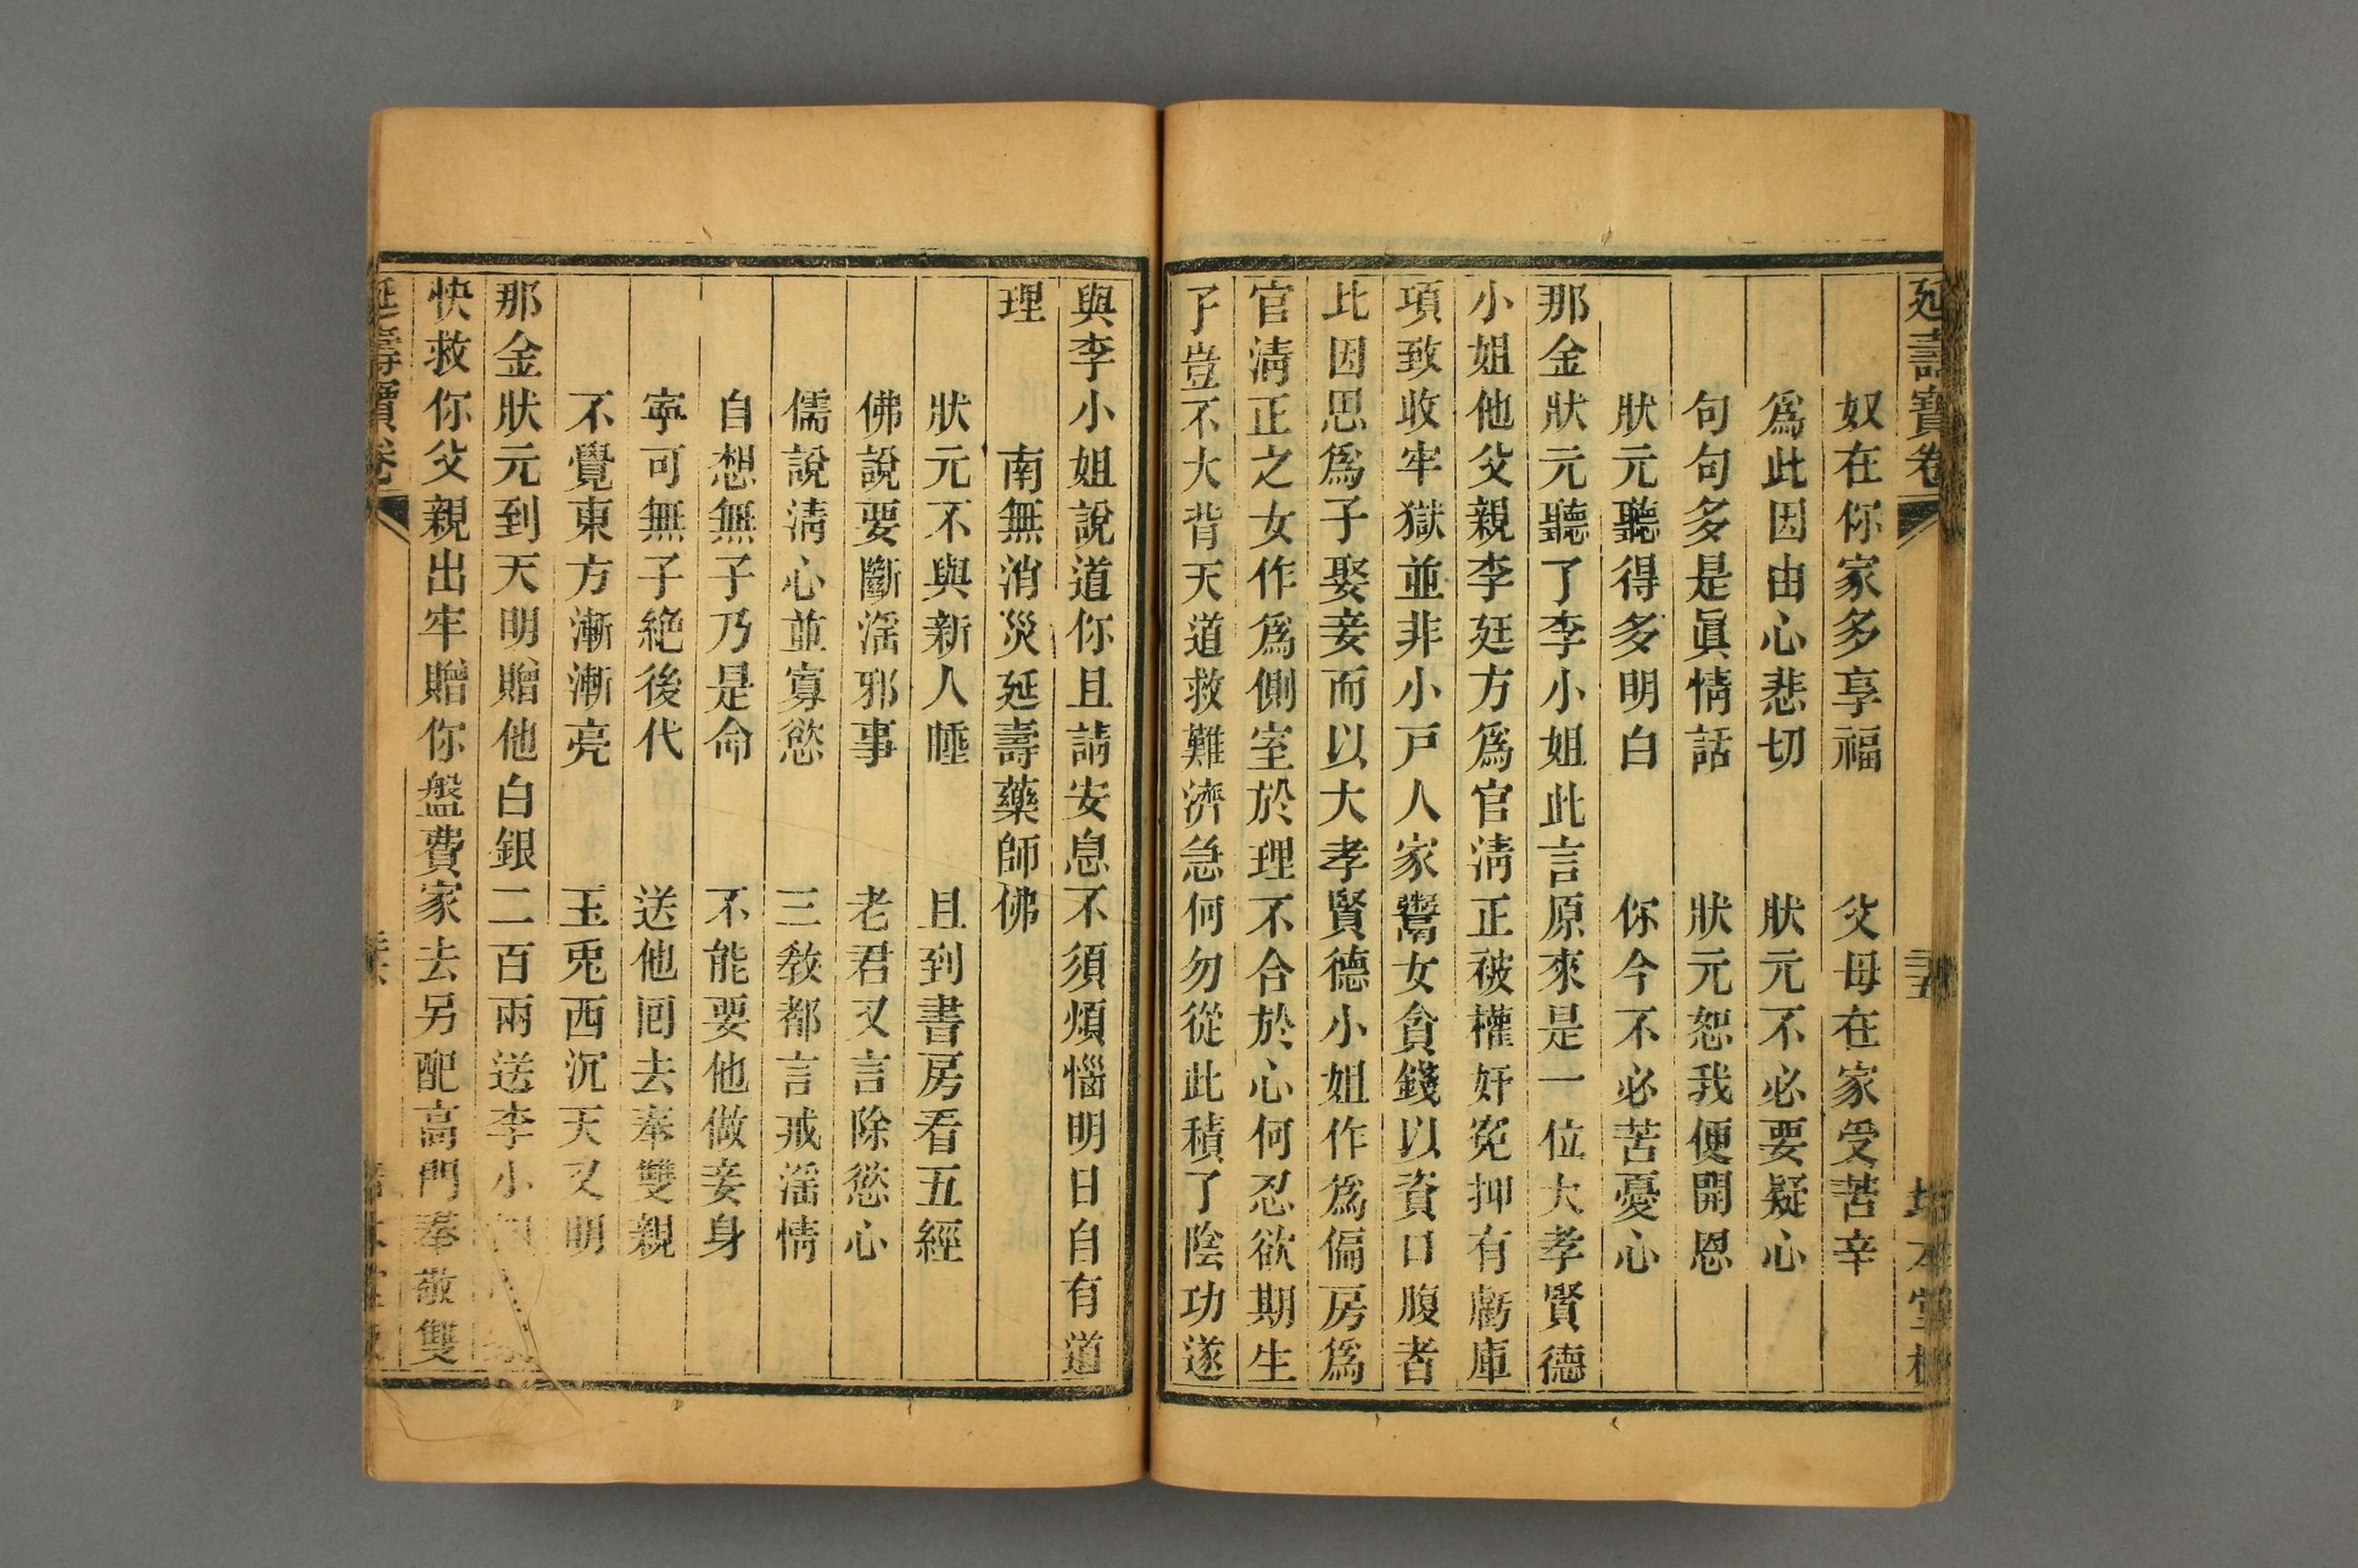 延壽寶卷 三五 培本堂板
奴在你家多享福 父母在家受苦辛
爲此因由心悲切 狀元不必要疑心
句句多是眞情話 狀元恕我便開恩
狀元聽得多明白 你今不必苦憂心
那金狀元聽了李小姐此言原來是一位大孝賢德
小姐他父親李廷方爲官淸正被權奸冤抑有虧庫
項致收牢獄並非小戸人家鬻女貪錢以資口腹者
比因思爲子娶妾而以大孝賢德小姐作爲偏房爲
官淸正之女作爲側室於理不合於心何忍欲期生
子豈不大背天道救難濟急何勿從此積了陰功遂
與李小姐說道你且請安息不須煩惱明日自有道
理 南無消災延壽藥師佛
狀元不與新人睡 且到書房看五經
佛說要斷滛邪事 老君又言除慾心
儒說淸心並寡慾 三敎都言戒滛情
自想無子乃是命 不能要他做妾身
寧可無子絕後代 送他囘去奉雙親
不覺東方漸漸亮 玉兎西沉天又明
那金狀元到天明贈他白銀二百兩送李小
快救你父親出牢贈你盤費家去另配高門奉敬雙
延壽寶卷